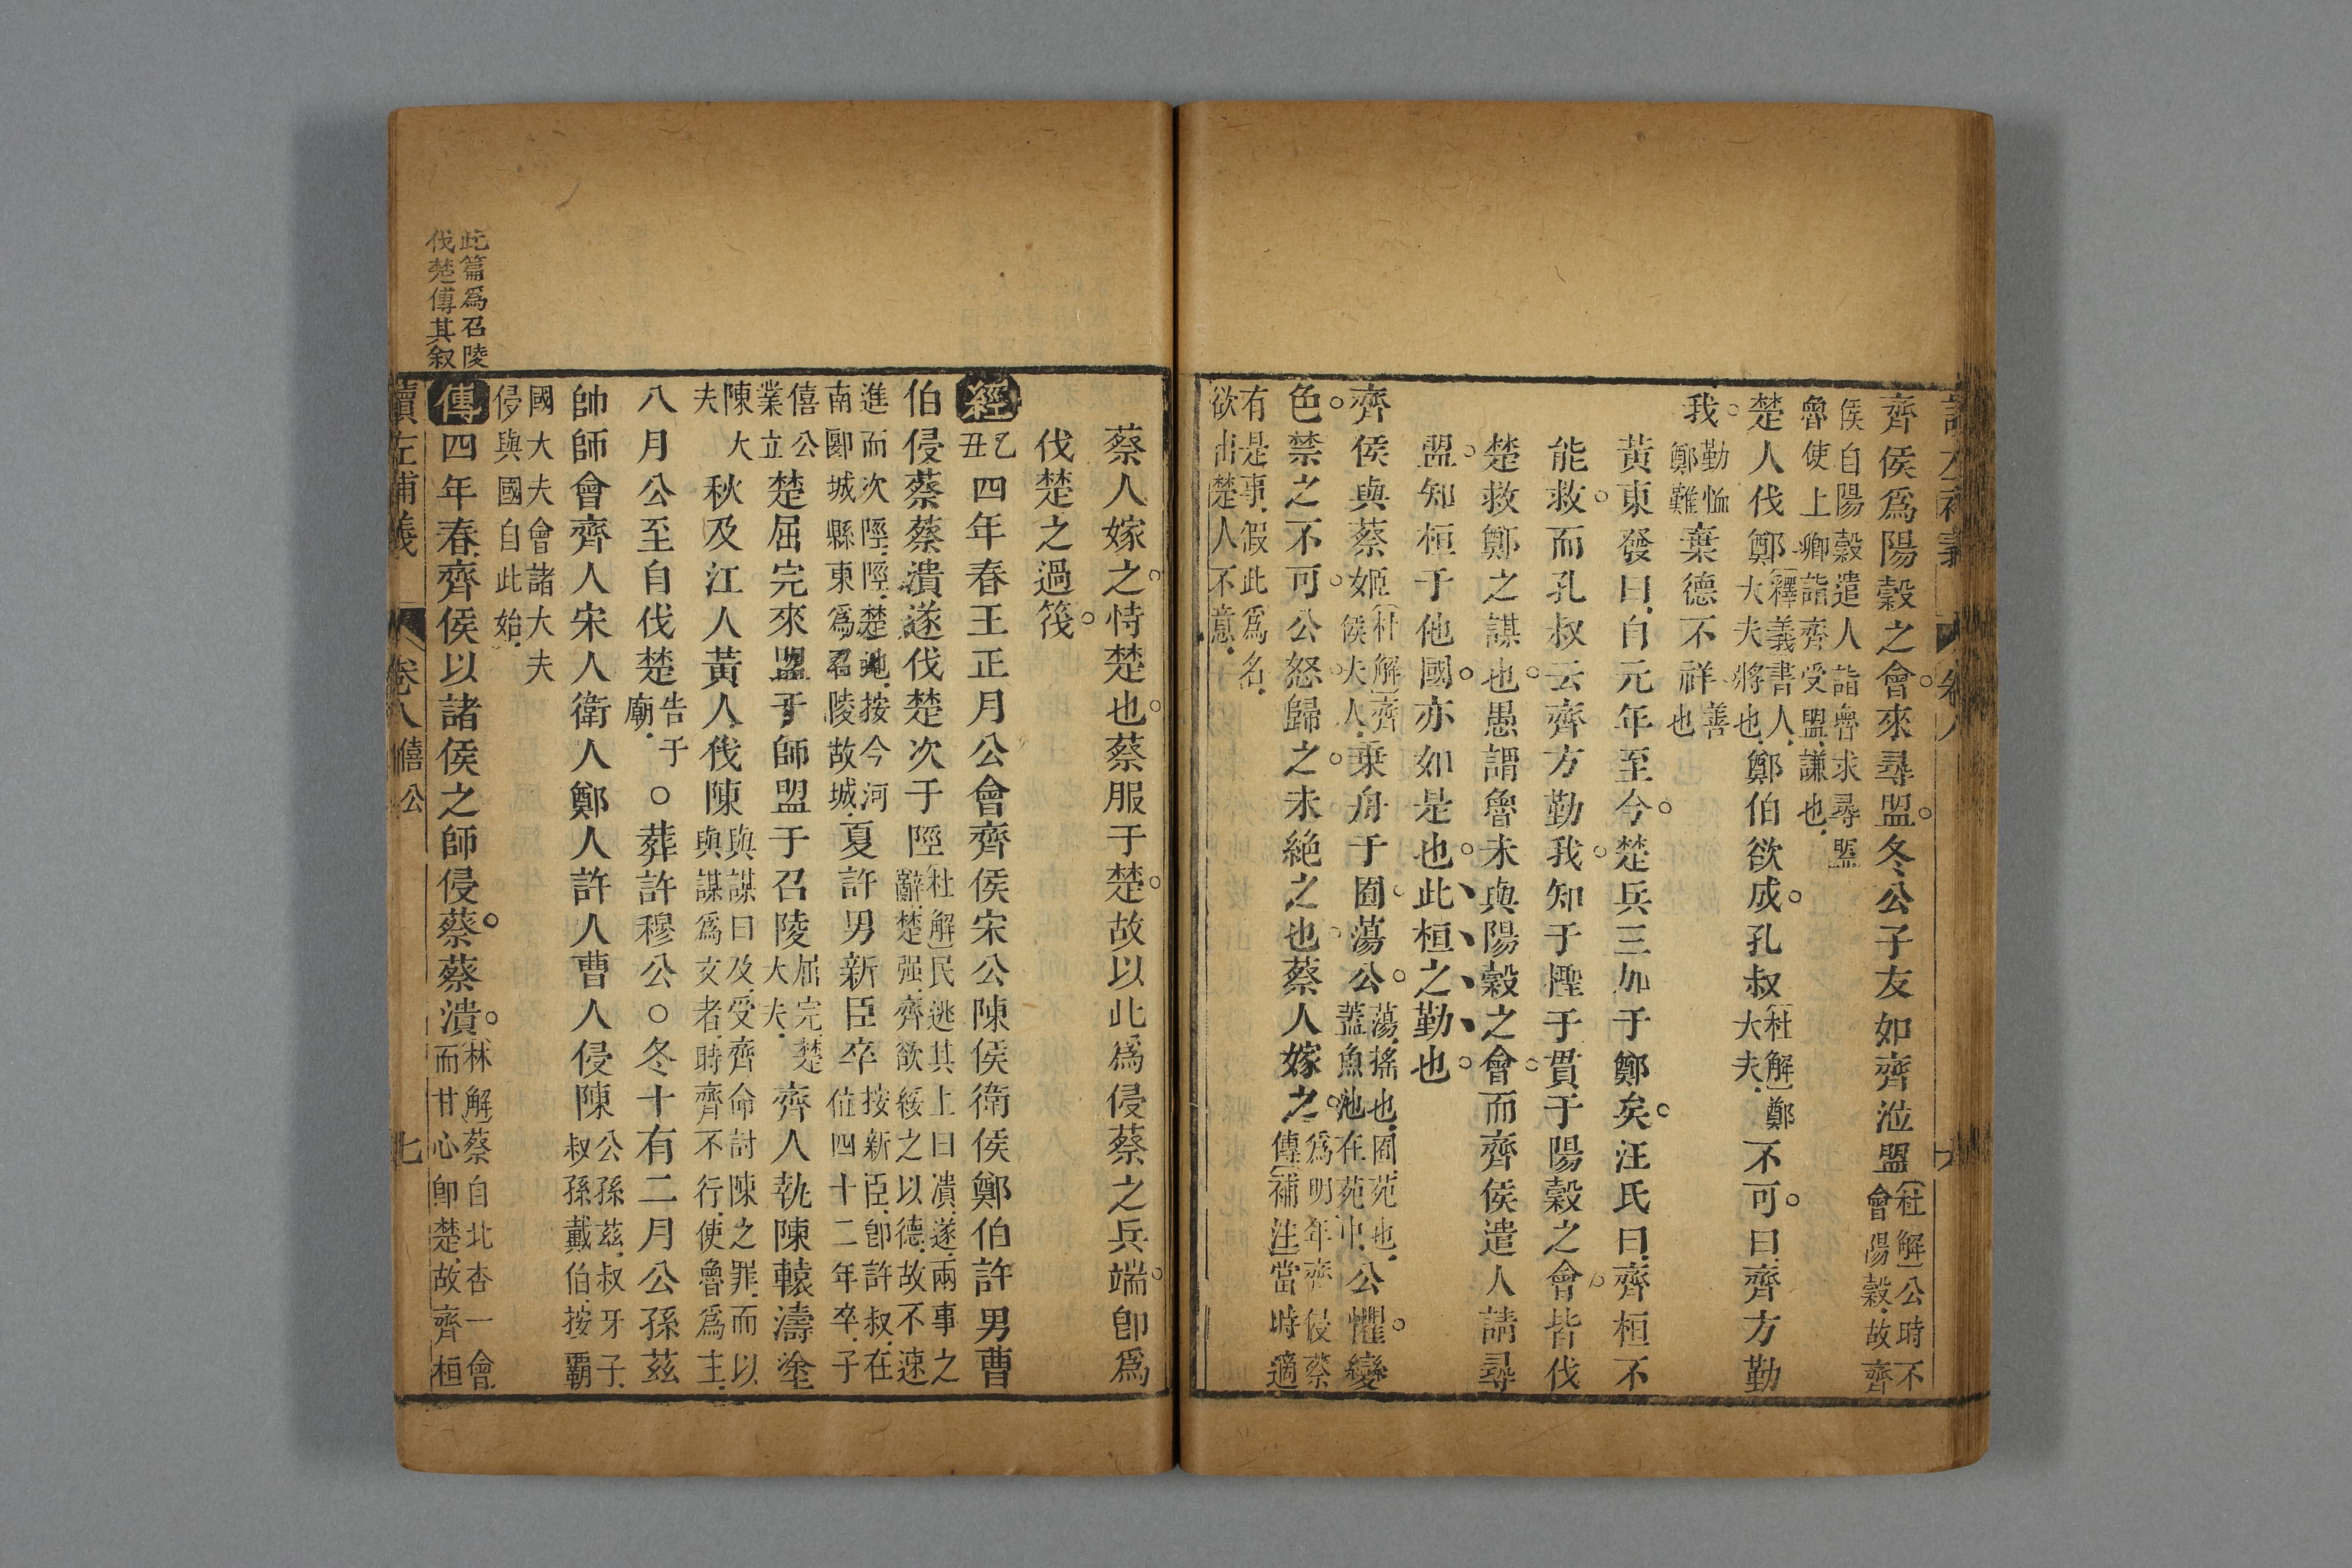 齊侯爲陽穀之會來尋盟冬公子友如齊涖盟杜解公時不會陽穀故齊
侯自陽穀遣人詣魯求尋盟魯使上卿詣齊受盟謙也
楚人伐鄭釋義書人大夫將也鄭伯欲成孔叔杜解鄭大夫不可曰齊方勤
我勤恤鄭難棄德不祥善也
黃東發曰自元年至今楚兵三加于鄭矣汪氏曰齊桓不
能救而孔叔云齊方勤我知于檉于貫于陽穀之會皆伐
楚救鄭之謀也愚謂魯未與陽穀之會而齊侯遣人請尋
盟知桓于他國亦如是也此桓之勤也
齊侯與蔡姬杜解齊侯夫人乗舟于囿蕩公蕩搖也囿苑也蓋魚池在苑中公懼變
色禁之不可公怒歸之未絶之也蔡人嫁之爲明年齊侵蔡傳補注當時適
有是事假此爲名欲出楚人不意
蔡人嫁之恃楚也蔡服于楚故以此爲侵蔡之兵端卽爲
伐楚之過筏
經乙丑四年春王正月公會齊侯宋公陳侯衛侯鄭伯許男曹
伯侵蔡蔡潰遂伐楚次于陘杜解民逃其上曰潰遂兩事之辭楚强齊欲綏之以德故不速
進而次陘陘楚地按今河南郾城縣東爲召陵故城夏許男新臣卒按新臣卽許叔在位四十二年卒子
僖公業立楚屈完來盟于師盟于召陵屈完楚大夫齊人執陳轅濤塗
陳大夫秋及江人黃人伐陳與謀曰及受齊命討陳之罪而以與謀爲文者時齊不行使魯爲主
八月公至自伐楚告于廟○葬許穆公○冬十有二月公孫茲
帥師會齊人宋人衛人鄭人許人曹人侵陳公孫茲叔牙子叔孫戴伯按霸
國大夫會諸大夫侵與國自此始
傳四年春齊侯以諸侯之師侵蔡蔡潰林解蔡自北杏一會而甘心卽楚故齊桓
此篇爲召陵
伐楚傳其叙
讀左補義 卷八 僖公 七